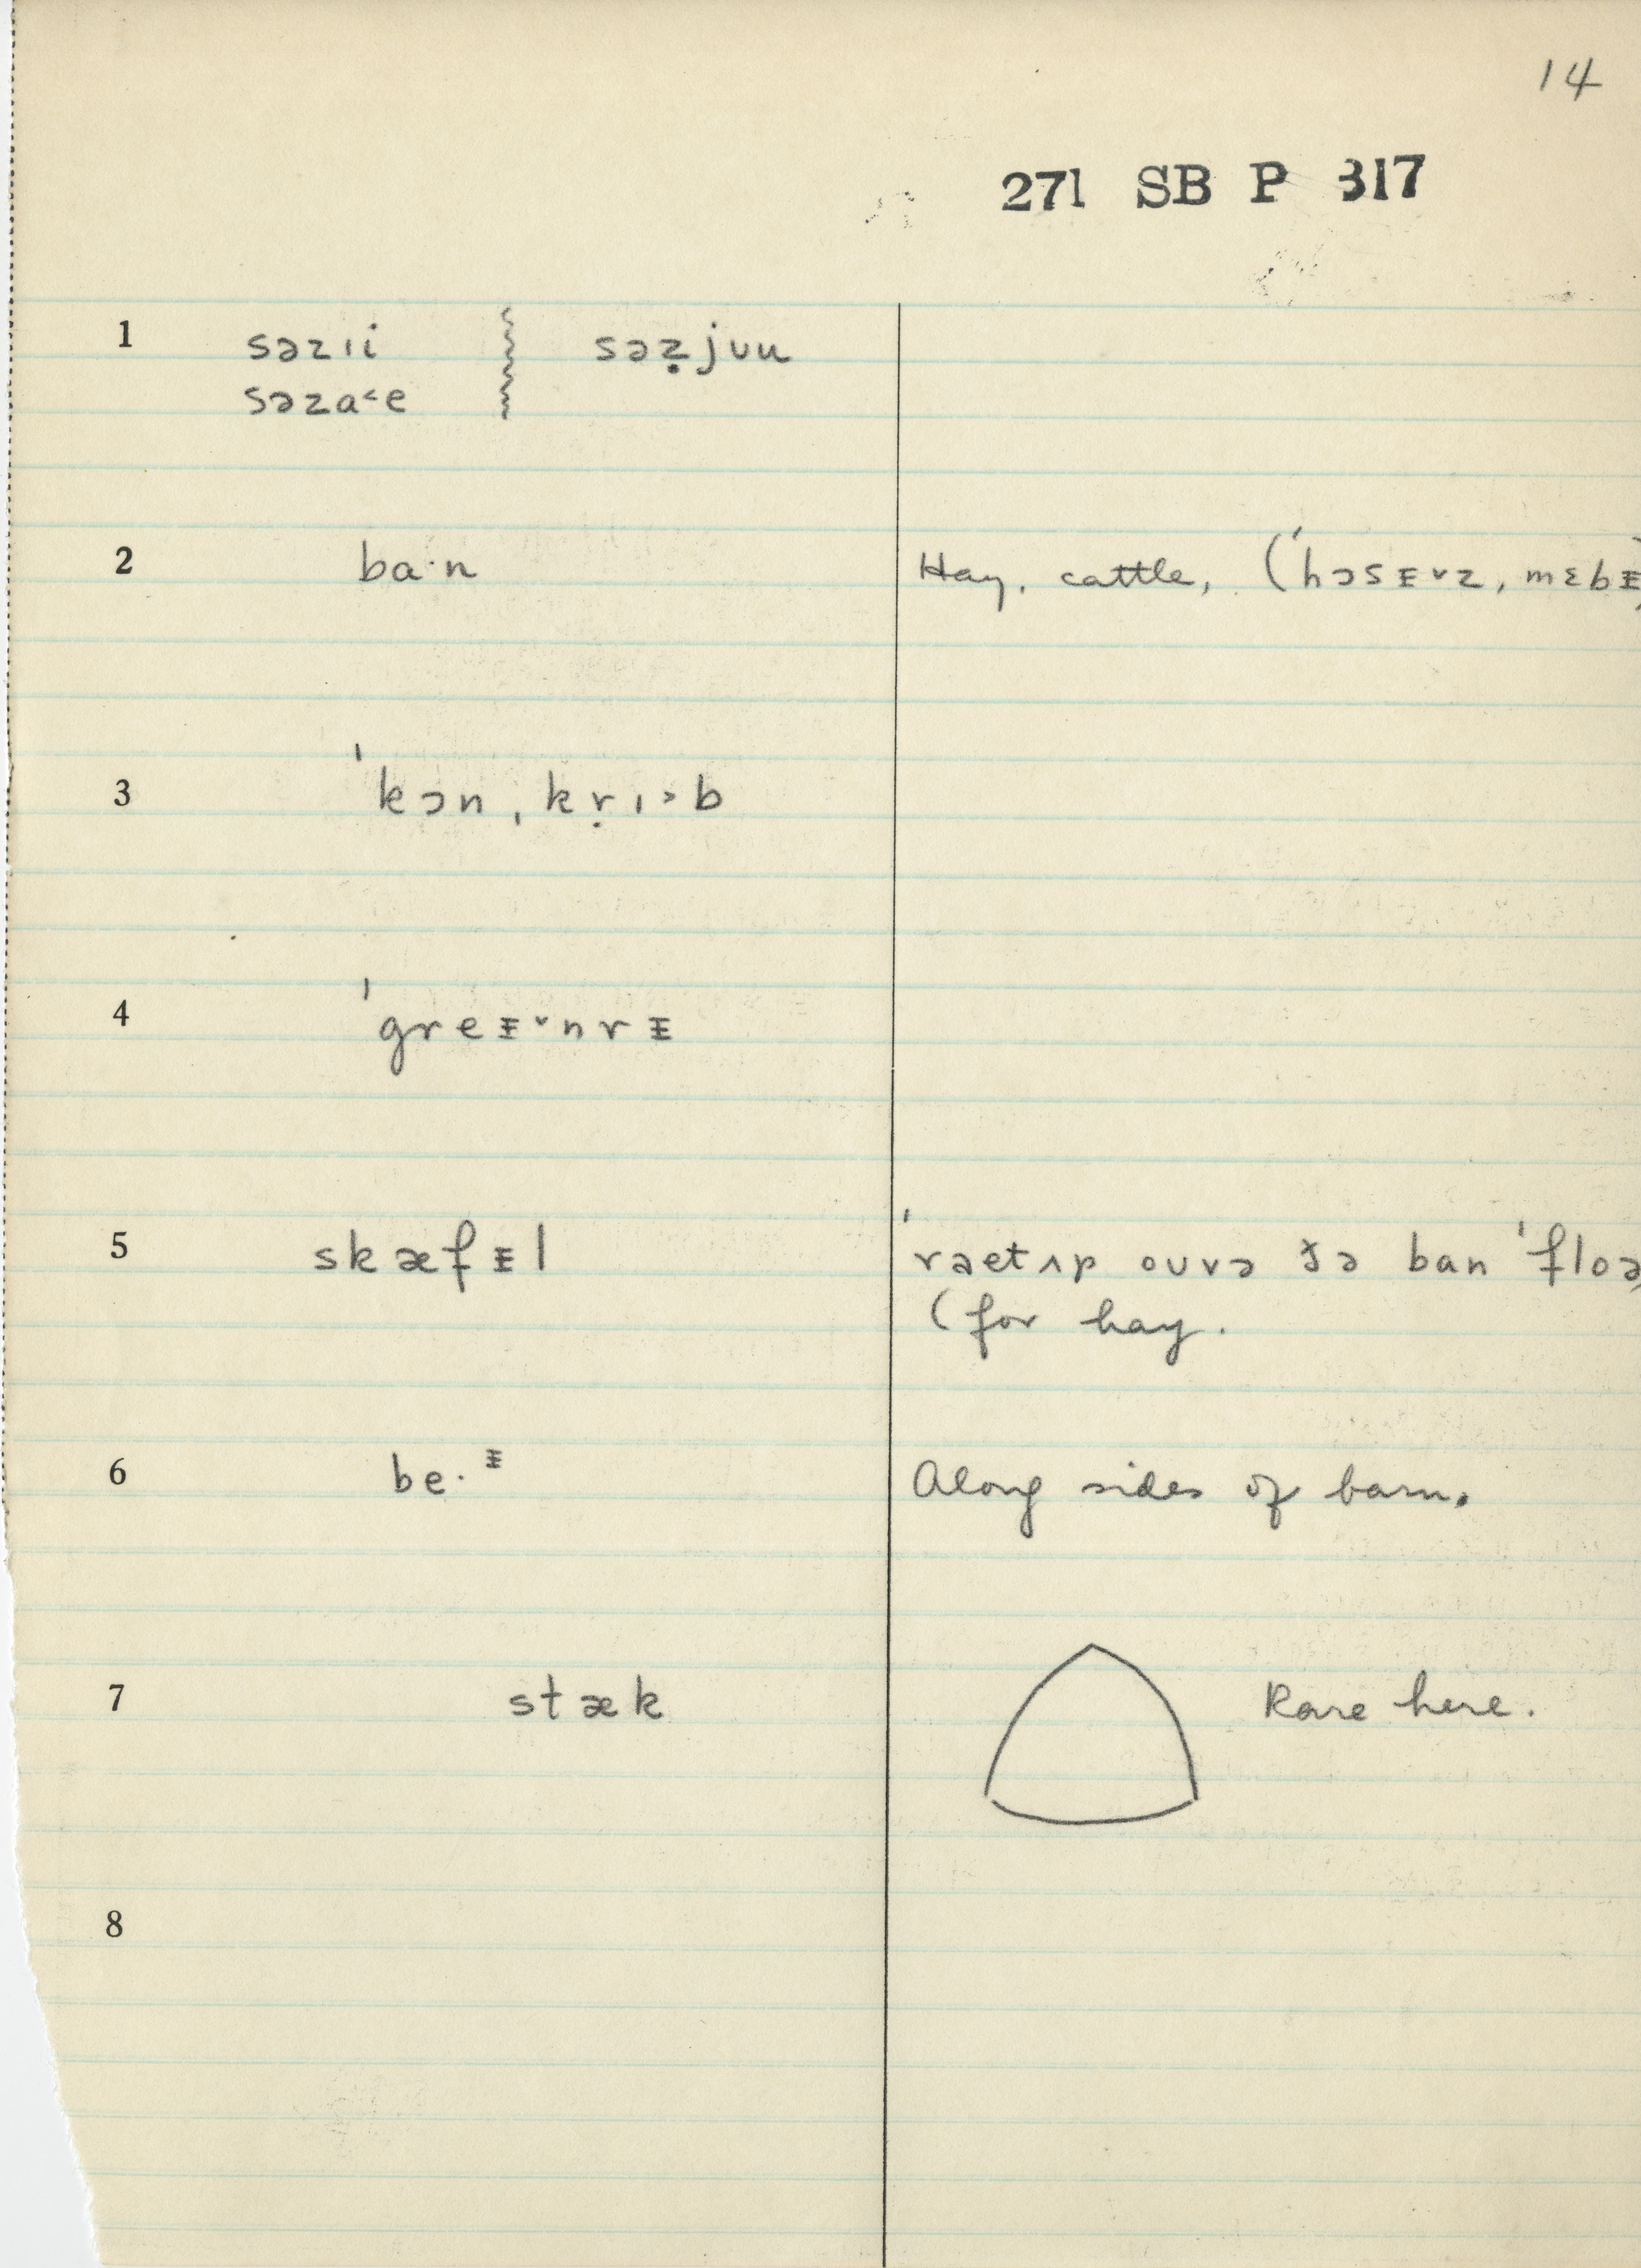 14
271 SB P 317
1 səzɪi səẓjuu
səza˂e
2 ba·n Hay, cattle, (ˈhɔsᵻ˅z, mɛbᵻ)
3 ˈkɔn ˌkṛɪ˃b
4 ˈgreᵻ˅nrᵻ
5 skæfᵻl ˈrəetʌp ouvə ðə ban ˈfloə,
(for hay.
6 be·ᵻ Along sides of barn.
7 stæk Rare here.
8